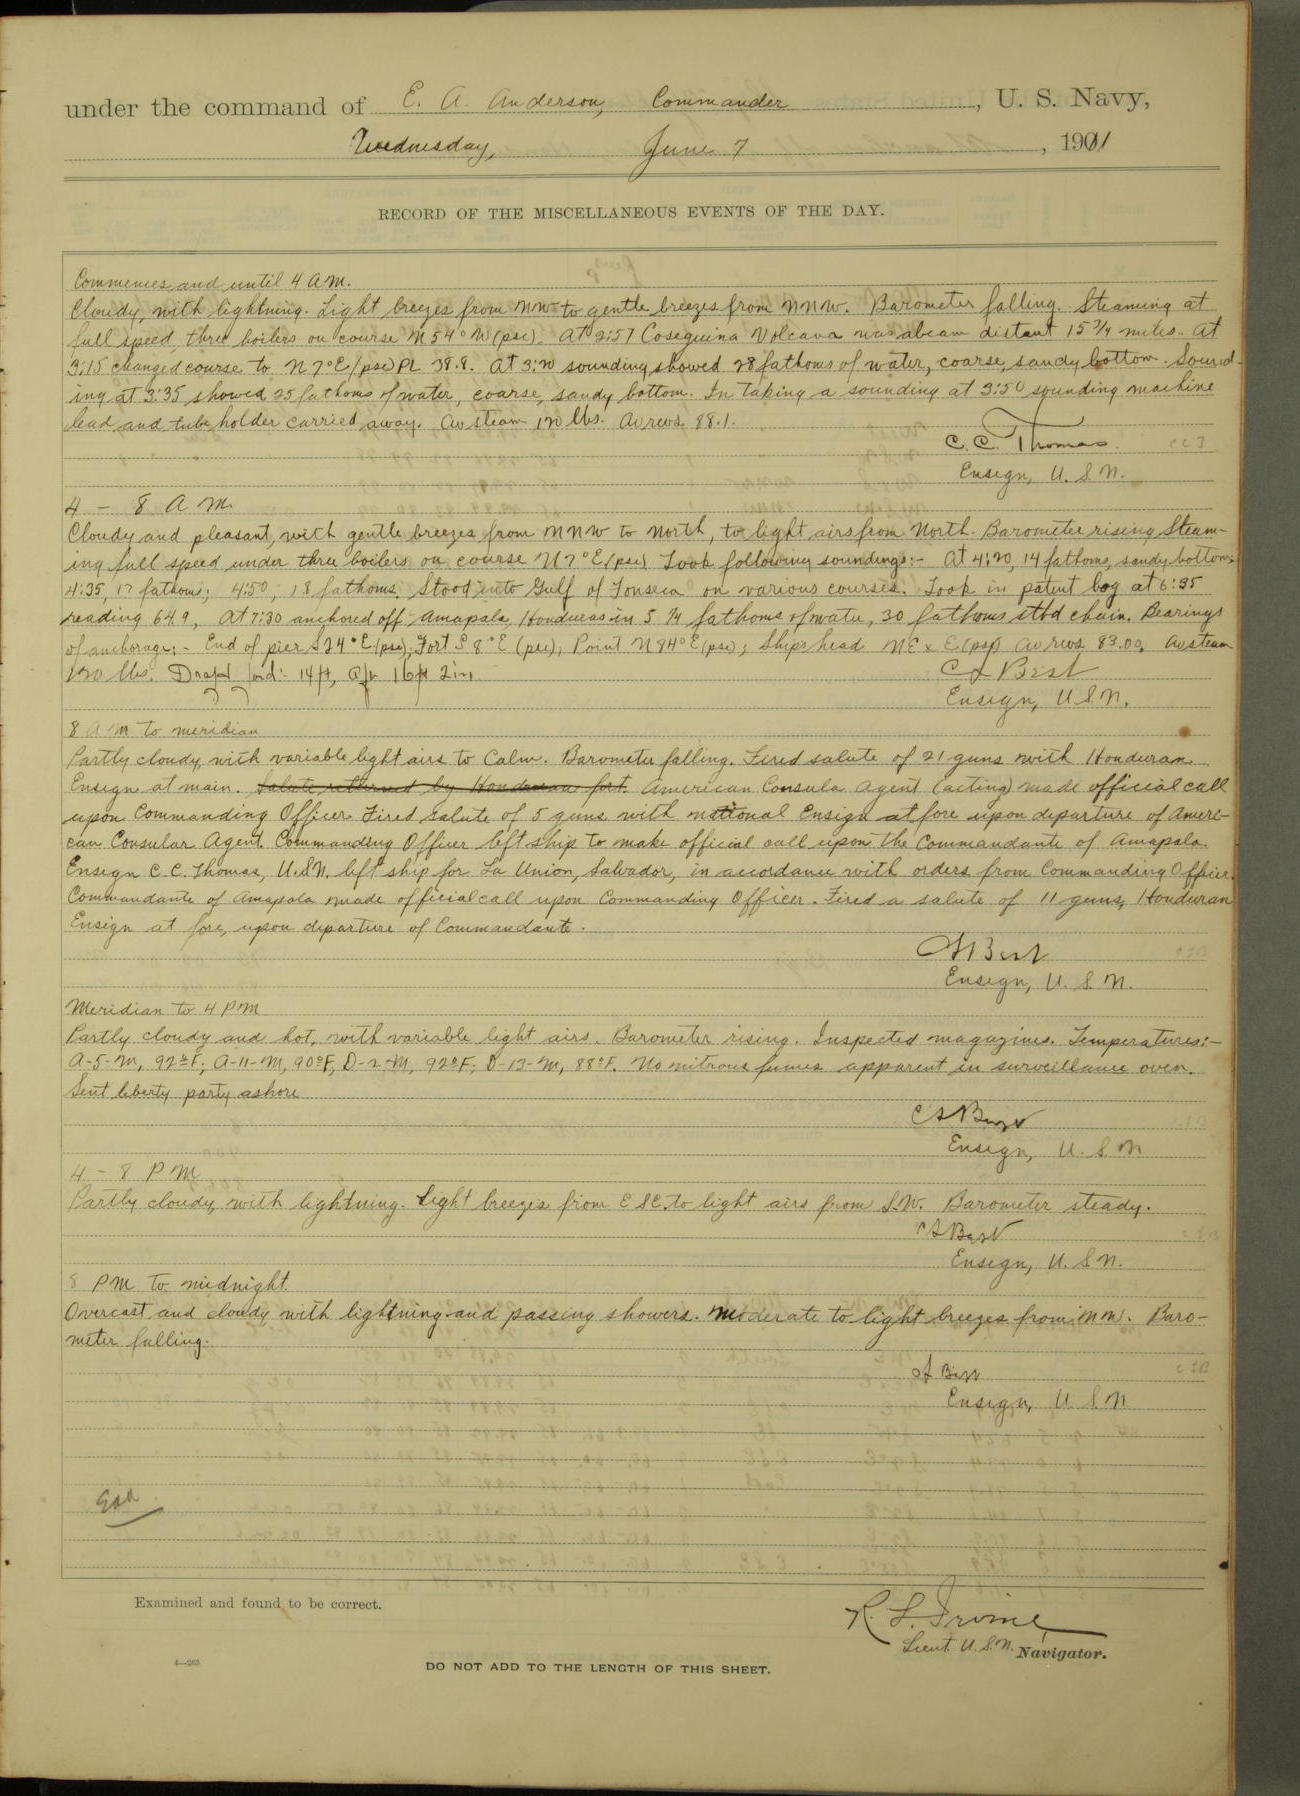 under the command of E. A. Anderson, Commander, U. S. Navy,
Wednesday, June 7, 1911
RECORD OF THE MISCELLANEOUS EVENTS OF THE DAY.
Commences and until 4 A.M.
Cloudy, with lightning. Light breezes from NW to gentle breezes from NNW. Barometer falling. Steaming at
full speed, three boilers on course N 54° W (psc). At 2:57 Coseguina Volcano was abeam distant 15 3/4 miles. At
3:15 changed course to N 7° E (psc) PL 38.8. At 3:20 sounding showed 28 fathoms of water, coarse, sandy bottom. Sound-
ing at 3:35 showed 25 fathoms of water, coarse, sandy bottom. In taking a sounding at 3:50 sounding machine
lead and tube holder carried away. Av steam 120 lbs. Av revs. 88.1.
C. C. Thomas
Ensign, U. S. N.
4 - 8 A M.
Cloudy and pleasant, with gentle breezes from NNW to North, to light airs from North. Barometer rising Steam-
ing full speed under three boilers on course N 7° E (psc) Took following soundings:- At 4:20, 14 fathoms, sandy bottom,
4:35, 17 fathoms; 4:50, 18 fathoms. Stood into Gulf of Fonseca on various courses. Took in patent log at 6:35
reading 64.9, At 7:30 anchored off Amapala, Honduras in 5 1/4 fathoms of water, 30 fathoms stbd chain. Bearings
of anchorage:- End of pier S 24° E (psc); Fort S 8° E (psc), Point N 84° E (psc); Ships head NE x E (psc) Av revs. 83.00, Av steam
120 lbs. Draft fwd:- 14 ft, aft 16 ft 2 in.
C S Best
Ensign, U.S.N.
8 A M to meridian
Partly cloudy, with variable light airs to Calm. Barometer falling. Fired salute of 21 guns with Honduran
Ensign at main. Salute returned by Honduran fort. American Consula Agent (acting) made official call
upon Commanding Officer. Fired salute of 5 guns with national Ensign at fore upon departure of Ameri-
can Consular Agent. Commanding Officer left ship to make official call upon the Commandante of Amapala.
Ensign C. C. Thomas, U.S.N. left ship for La Union, Salvador, in accordance with orders from Commanding Officer.
Commandante of Amapala made official call upon Commanding Officer. Fired a salute of 11 guns, Honduran
Ensign at fore, upon departure of Commandante.
C S Best
Ensign, U. S. N.
Meridian to 4 P M
Partly cloudy and hot, with variable light airs. Barometer rising. Inspected magazines. Temperatures:-
A-5-M, 92°F; A-11-M, 90°F, D-2-M, 92°F; D-13-M, 88°F. No nitrous fumes apparent in surveillance oven.
Sent liberty party ashore
C S Best
Ensign, U. S. N
4 - 8 P M
Partly cloudy, with lightning. Light breezes from E SE. to light airs from S.W. Barometer steady.
C S Best
Ensign, U. S. N.
8 PM to midnight.
Overcast and cloudy with lightning and passing showers. Moderate to light breezes from NW. Baro-
meter falling.
C S Best
Ensign, U S. N
Examined and found to be correct.
R. L. Irvine,
Lieut. U.S.N. Navigator.
4—265
DO NOT ADD TO THE LENGTH OF THIS SHEET.